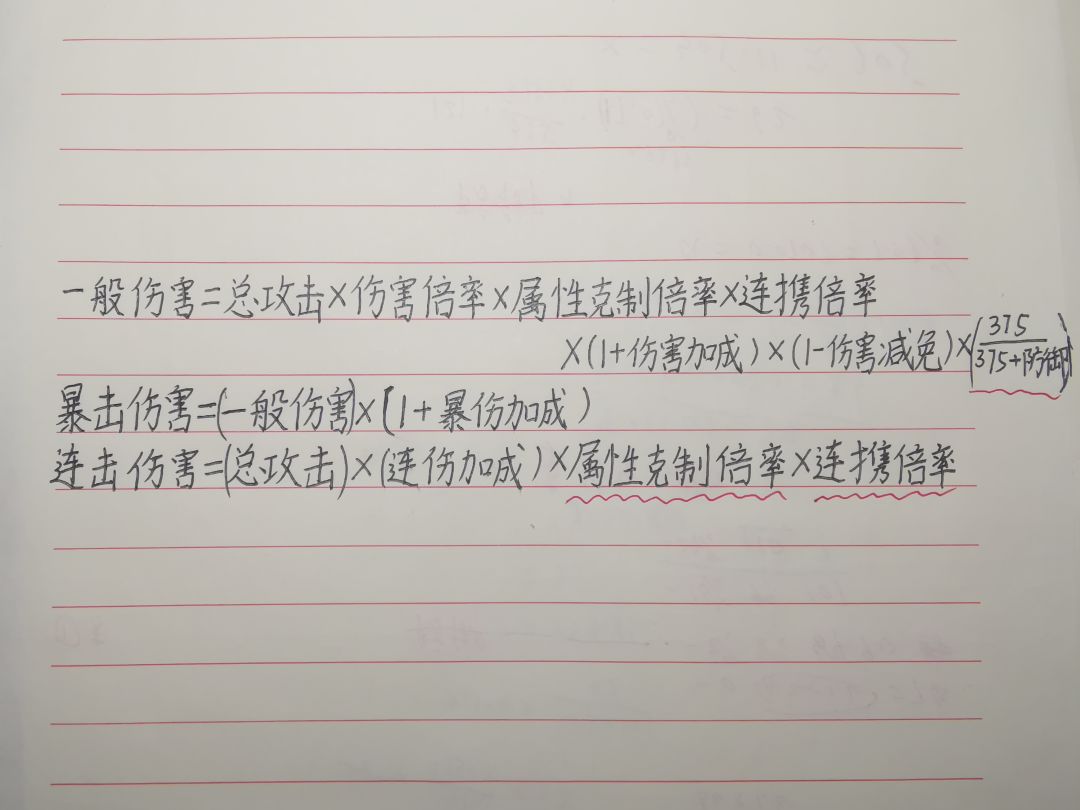 一般伤害=总攻击×伤害倍率×属性克制倍率×连携倍率
×(1+伤害加成)×(1-伤害减免)×(375/375+防御)
暴击伤害=(一般伤害)×(1+暴伤加成)
连击伤害=(总攻击)×(连伤加成)×属性克制倍率×连携倍率